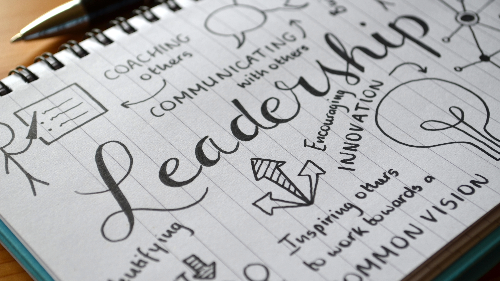 COACHING
others
COMMUNICATING
with others
Leadership
Encouraging
INNOVATION
Inspiring others
to work towards a
OMMON VISION
entifying